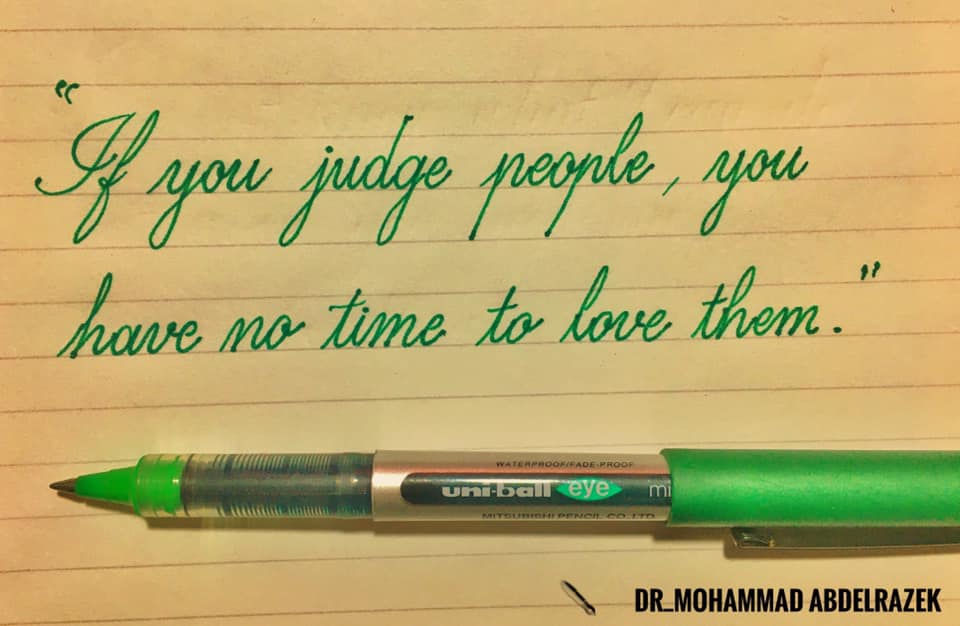 "If you judge people, you
have no time to love them."
WATERPROOF/FADE-PROOF
uni-ball eye mi
MITSUBISHI PENCIL CO. LTD
DR_MOHAMMAD ABDELRAZEK